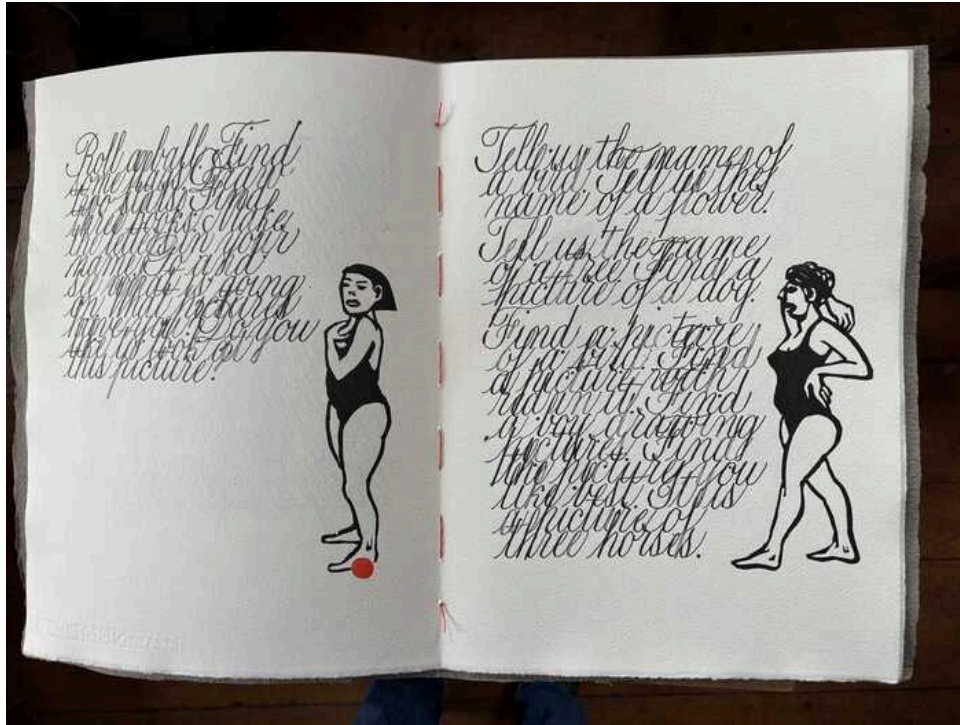 Roll a ball. Find
one
two Find
three Make
the letter in your
name. It and
is going
on What pictures
have you? Do you
like to look at
this picture?
Tell us the name of
a bird. Tell us the
name of a flower.
Tell us the name
of a tree. Find a
picture of a dog.
Find a picture
of a bird. Find
a picture with
in it. Find
a boy drawing
pictures. Find
the picture you
like best. It is
a picture of
three horses.